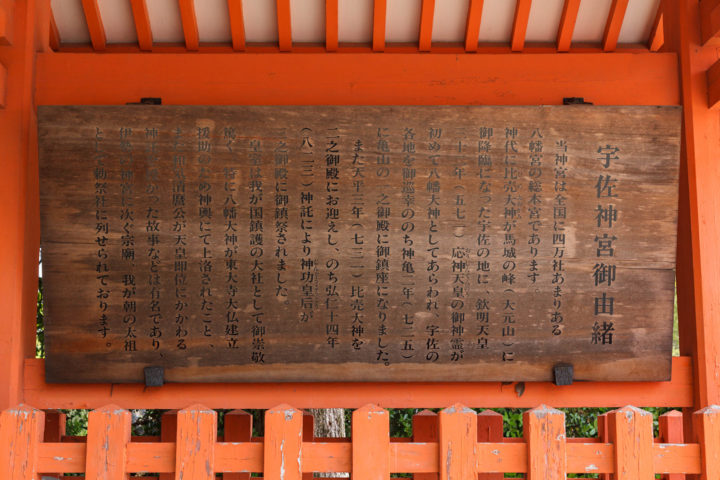 宇佐神宮御由緒
当神宮は全国に四万社あまりある
八幡宮の総本宮であります
神代に比売大神が馬城の峰(大元山)に
御降臨になった宇佐の地に、欽明天皇
三十二年(五七一)応神天皇の御神霊が
初めて八幡大神としてあらわれ、宇佐の
各地を御巡幸ののち神亀二年(七二五)
に亀山の一之御殿に御鎮座になりました。
また天平三年(七三一)比売大神を
二之御殿にお迎えし、のち弘仁十四年
(八二三)神託により神功皇后が
三之御殿に御鎮祭されました
皇室は我が国鎮護の大社として御崇敬
篤く、特に八幡大神が東大寺大仏建立
援助のため神輿にて上洛されたこと、
また和気清麿公が天皇即位にかかわる
神託を授かった故事などは有名であり、
伊勢の神宮に次ぐ宗廟、我が朝の太祖
として勅祭社に列せられております。